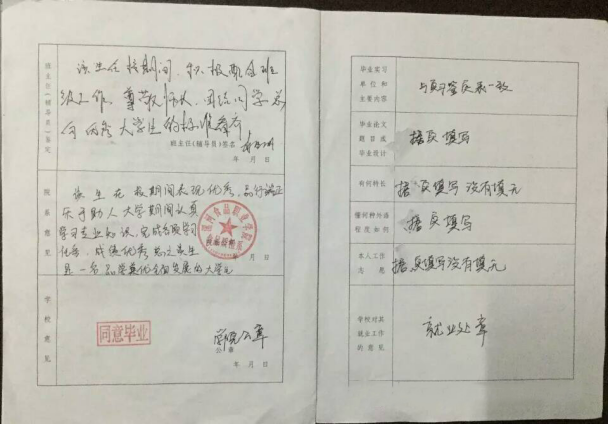 班主任(辅导员)鉴定
该生在校期间,积极配合班
级工作,尊敬师长,团结同学
大学生的标准
班主任(辅导员)签名
年 月 日
院系意见
该生在校期间表现优秀,品行端正
乐于助人大学期间认真
学习专业知识,完成各项学习
任务,成绩优秀,总之该生
是一名品学兼优全面发展的大学生
漯河食品职业学院
年 月 日
学校意见
同意毕业
学院公章
公章
年 月 日
毕业实习
单位和
主要内容
与实习鉴定表一致
毕业论文
题目或
毕业设计
据实填写
有何特长
据实填写 没有填无
懂何种外语
程度如何
据实填写
本人工作
志愿
据实填写没有填无
学校对其
就业工作
的意见
就业处章